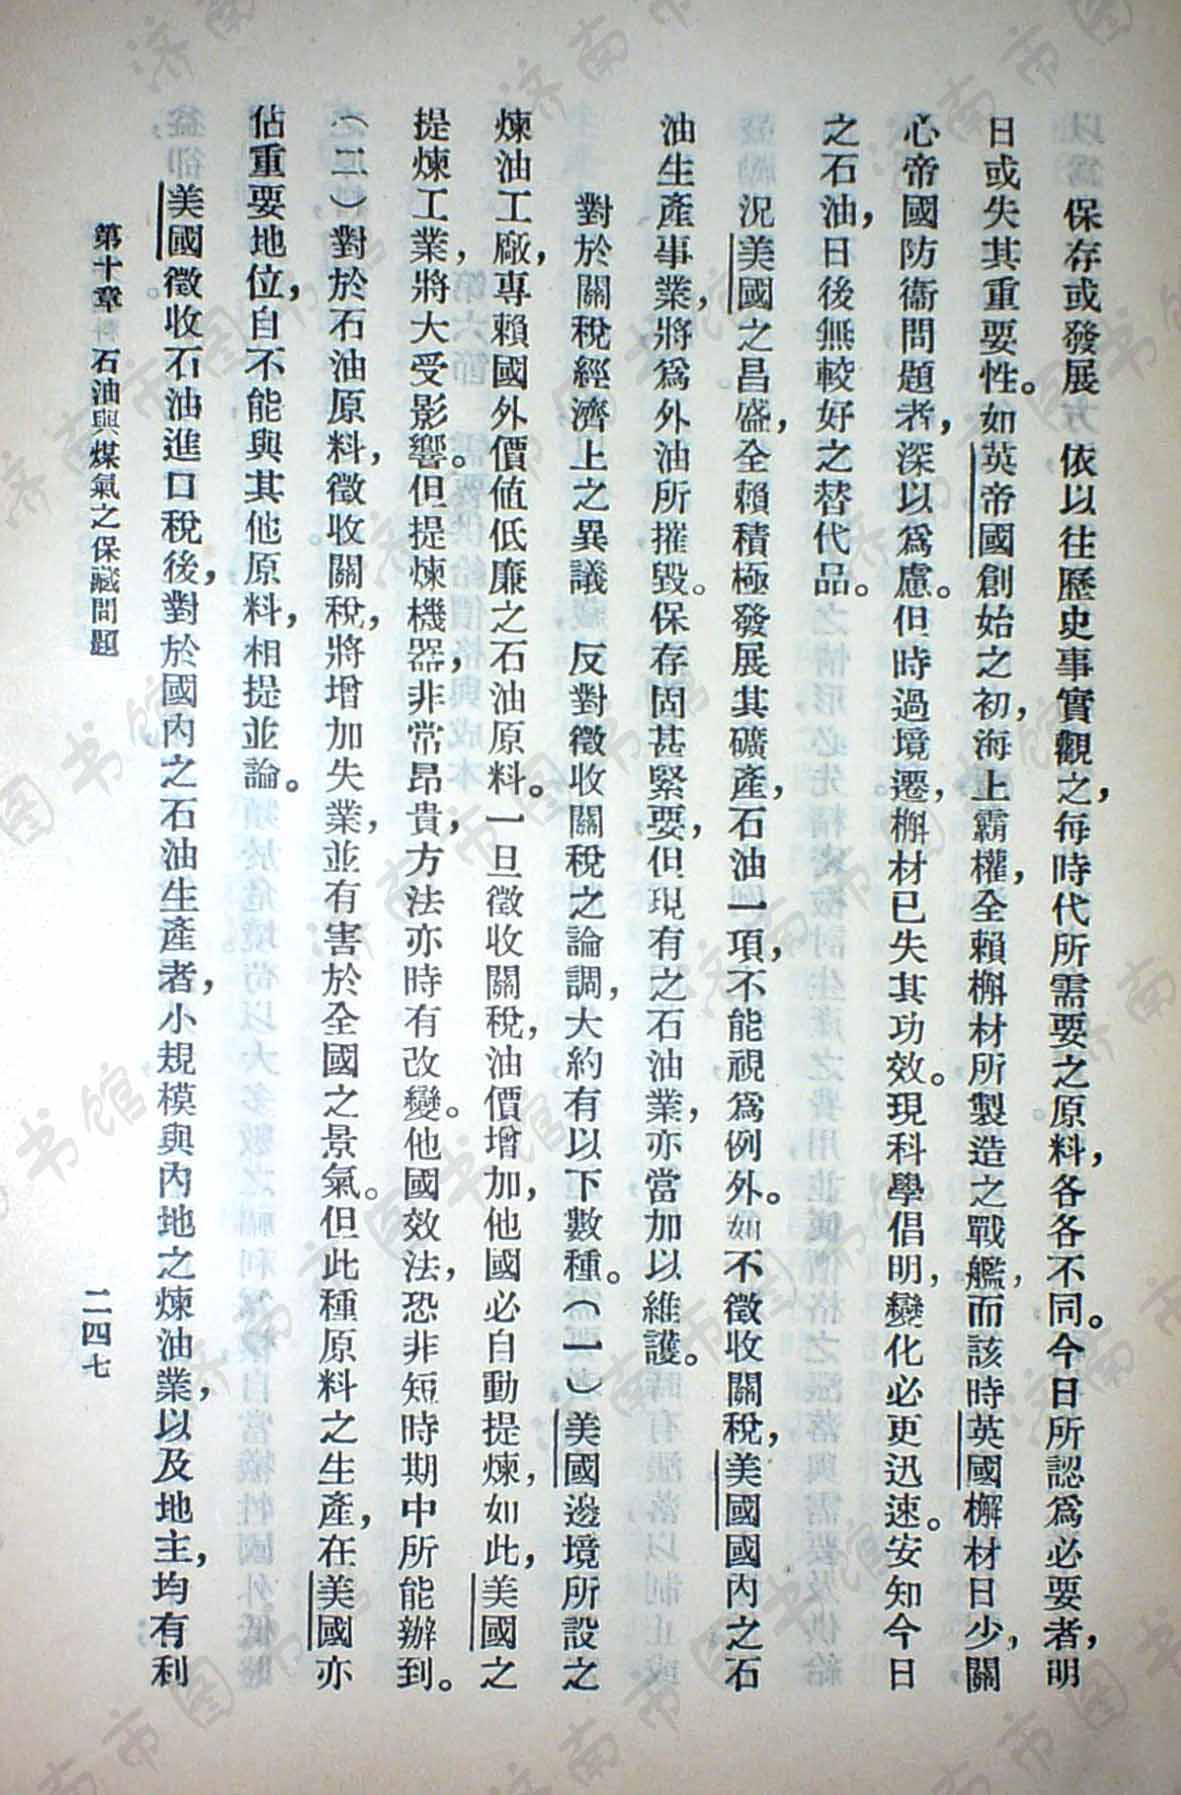 保存或發展　依以往歷史事實觀之，每時代所需要之原料，各各不同。今日所認爲必要者，明
日或失其重要性。如英帝國創始之初，海上霸權，全賴槲材所製造之戰艦，而該時英國槲材日少，關
心帝國防衞問題者，深以爲慮。但時過境遷，槲材已失其功效。現科學倡明，變化必更迅速。安知今日
之石油，日後無較好之替代品。
況美國之昌盛，全賴積極發展其礦產，石油一項，不能視爲例外。如不徵收關稅，美國國內之石
油生產事業，將爲外油所摧毀。保存固甚緊要，但現有之石油業，亦當加以維護。
對於關稅經濟上之異議　反對徵收關稅之論調，大約有以下數種。（一）美國邊境所設之
煉油工廠，專賴國外價值低廉之石油原料。一旦徵收關稅，油價增加，他國必自動提煉，如此，美國之
提煉工業，將大受影響。但提煉機器，非常昂貴，方法亦時有改變。他國效法，恐非短時期中所能辦到。
（二）對於石油原料，徵收關稅，將增加失業，並有害於全國之景氣。但此種原料之生產，在美國亦
佔重要地位，自不能與其他原料，相提並論。
美國徵收石油進口稅後，對於國內之石油生產者，小規模與內地之煉油業，以及地主，均有利
第十章　石油與煤氣之保藏問題
二四七
济南市图书馆